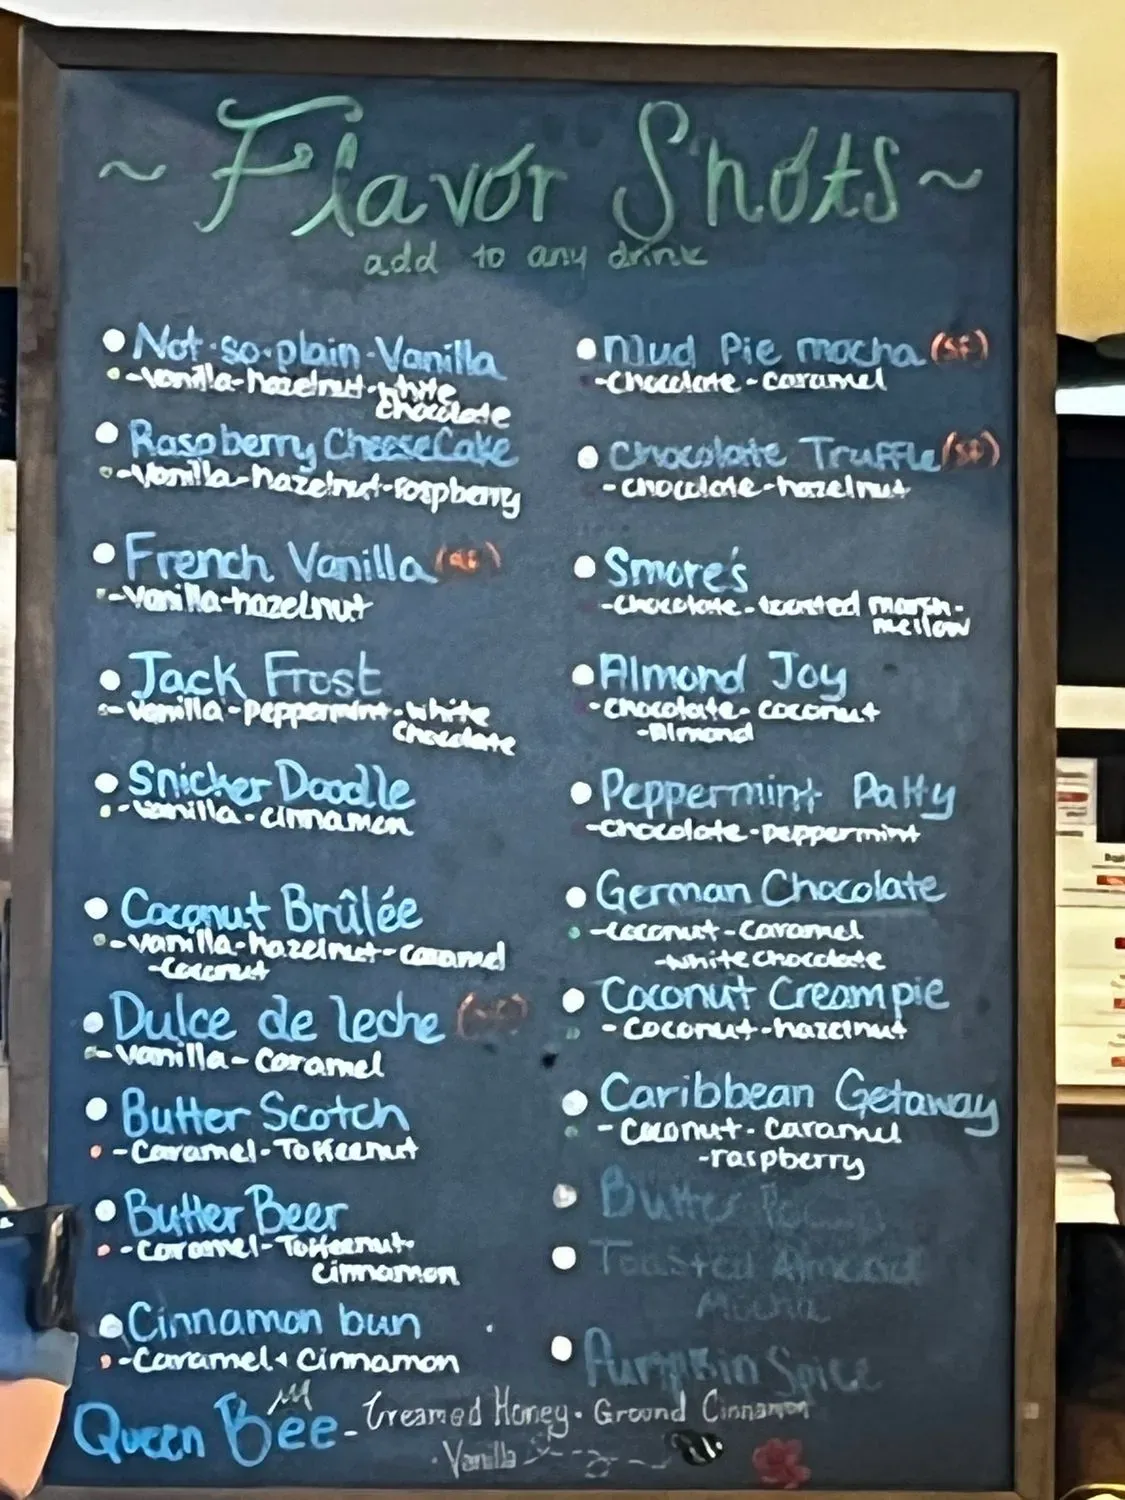 ~ Flavor Shots ~
add to any drink
Not-so-plain-Vanilla
-vanilla-hazelnut-white
chocolate
Raspberry CheeseCake
-Vanilla-hazelnut-raspberry
French Vanilla (SF)
-Vanilla-hazelnut
Jack Frost
-vanilla-peppermint-white
chocolate
Snicker Doodle
-vanilla-cinnamon
Coconut Brûlée
-vanilla-hazelnut-caramel
-coconut
Dulce de leche (SF)
-vanilla-caramel
Butter Scotch
-Caramel-Toffeenut
Butter Beer
-caramel-Toffeenut-
cinnamon
Cinnamon bun
-Caramel-Cinnamon
Mud Pie mocha (SF)
-chocolate-caramel
Chocolate Truffle (SF)
-chocolate-hazelnut
Smore's
-chocolate-toasted marsh-
mellow
Almond Joy
-chocolate-coconut
-Almond
Peppermint Patty
-chocolate-peppermint
German Chocolate
-coconut-caramel
-white chocolate
Coconut Creampie
-coconut-hazelnut
Caribbean Getaway
-coconut-caramel
-raspberry
Butter
Toasted Almond
Mocha
Pumpkin Spice
Queen Bee - Creamed Honey - Ground Cinnamon
- Vanilla